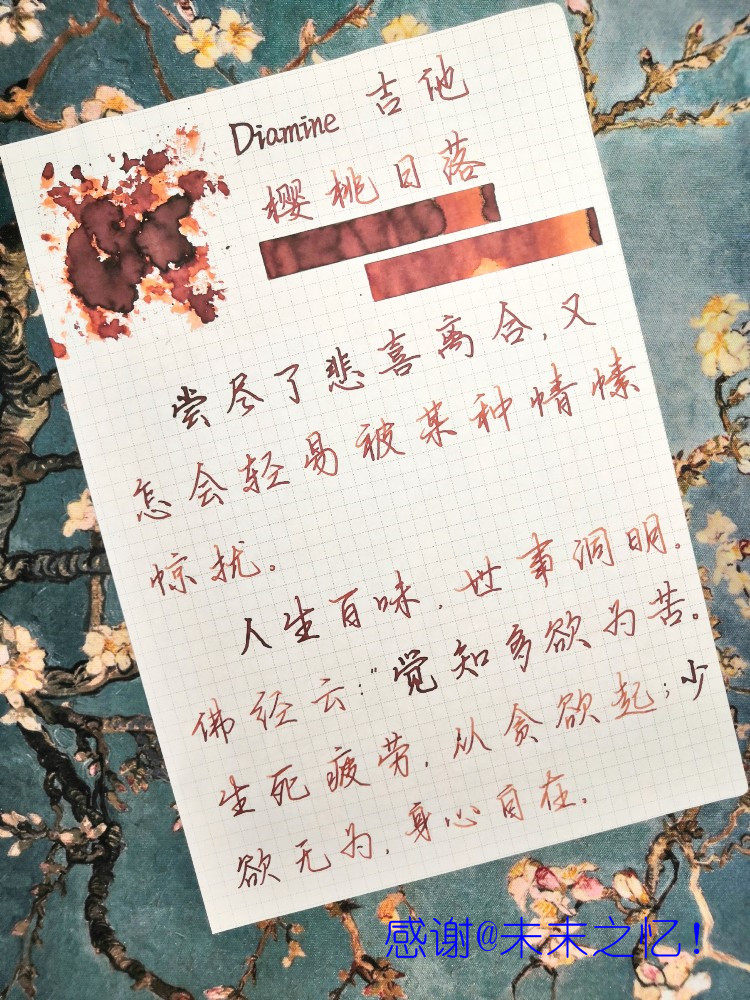 Diamine 吉他
樱桃日落
尝尽了悲喜离合,又
怎会轻易被某种情愫
惊扰。
人生百味,世事洞明。
佛经云:“觉知多欲为苦。
生死疲劳,从贪欲起;少
欲无为,身心自在。
感谢@未未之忆!